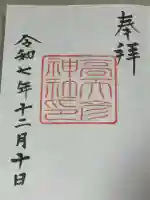 奉拝
高六彦
神社印
令和七年十二月十日